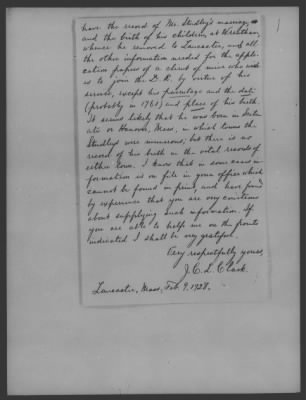 have the record of Mr. Studley's marriage
and the birth of his children, at Wrentham,
whence he removed to Lancaster, and all
the other information needed for the appli-
cation papers of a client of mine who wish-
es to join the D.R. by virtue of his
service, except his parentage and the date
(probably in 1761) and place of his birth.
It seems likely that he was born in Scitu-
ate or Hanover, Mass., in which towns the
Studleys were numerous; but there is no
record of his birth in the vital records of
either town. I know that in some cases in-
formation is on file in your office which
cannot be found in print, and have found
by experience that you are very courteous
about supplying such information. If
you are able to help me on the points
indicated I shall be very grateful.
Very respectfully yours,
J. C. L. Clark.
Lancaster, Mass., Feb. 9, 1928.